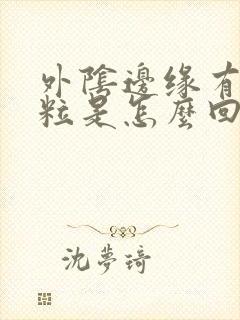 外陰邊缘有
粒是怎麼回
沈夢琦